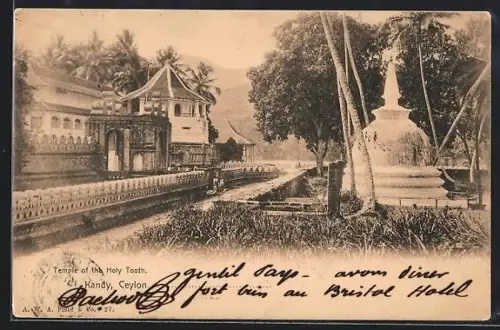 Temple of the Holy Tooth.
Kandy, Ceylon
gentil Pays - avons diner
fort bien au Bristol Hotel
A. W. A. Plâté & Co. # 27.